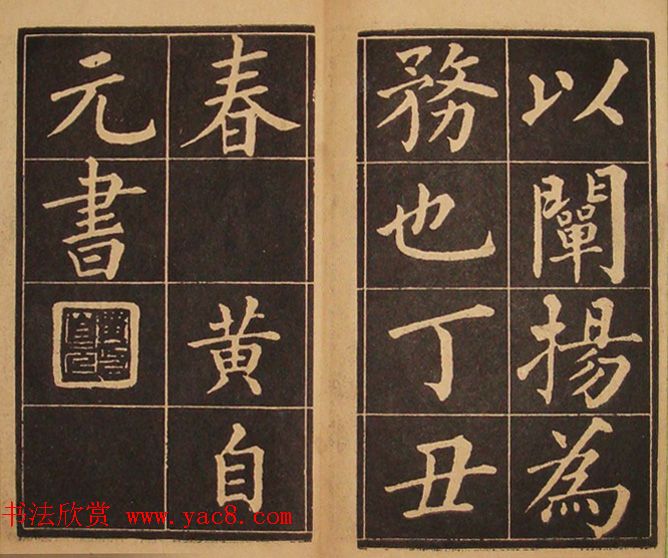 以闡揚為
務也丁丑
春　黄自
元書
书法欣赏 www.yac8.com